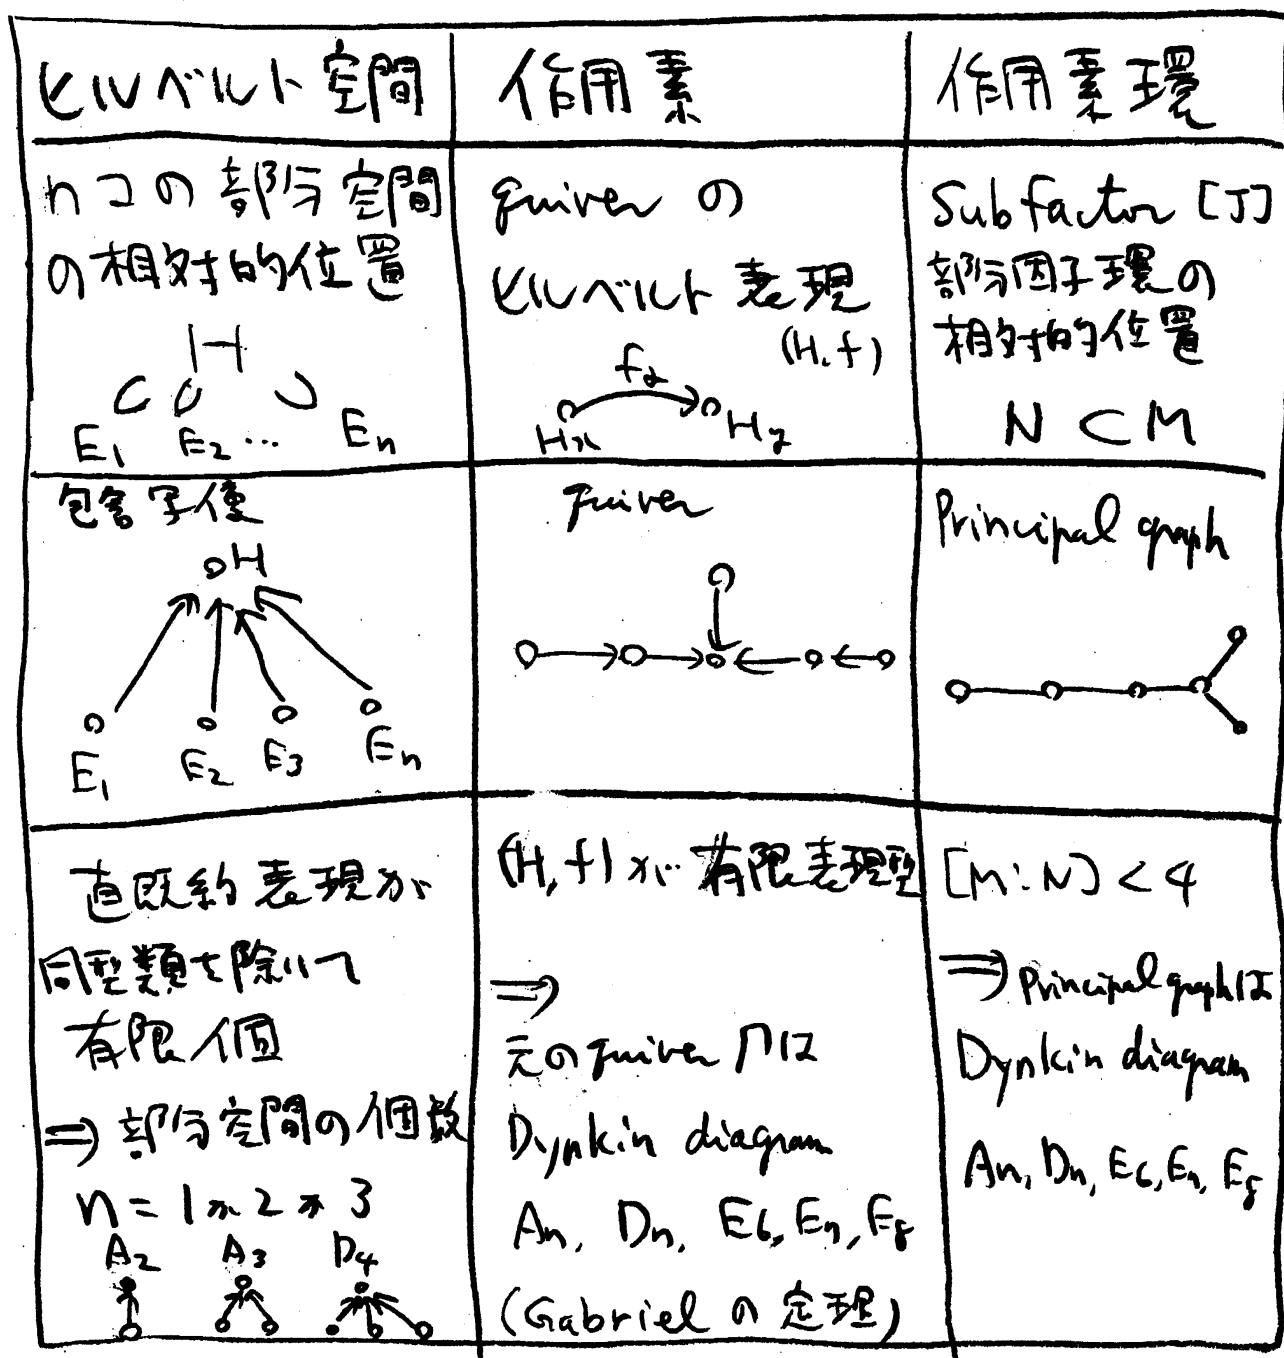 ヒルベルト空間
作用素
作用素環
nコの部分空間
の相対的位置
H
E1 E2 … En
quiver の
ヒルベルト表現
(H, f)
fα
Hx Hy
Subfactor [J]
部分因子環の
相対的位置
N ⊂ M
包含写像
H
E1 E2 E3 En
quiver
Principal graph
直既約表現が
同型類を除いて
有限個
⇒ 部分空間の個数
n = 1か2か3
A2 A3 D4
(H, f)が有限表現型
⇒
元のquiver Γは
Dynkin diagram
An, Dn, E6, E7, E8
(Gabriel の定理)
[M:N] < 4
⇒ Principal graphは
Dynkin diagram
An, Dn, E6, E7, E8